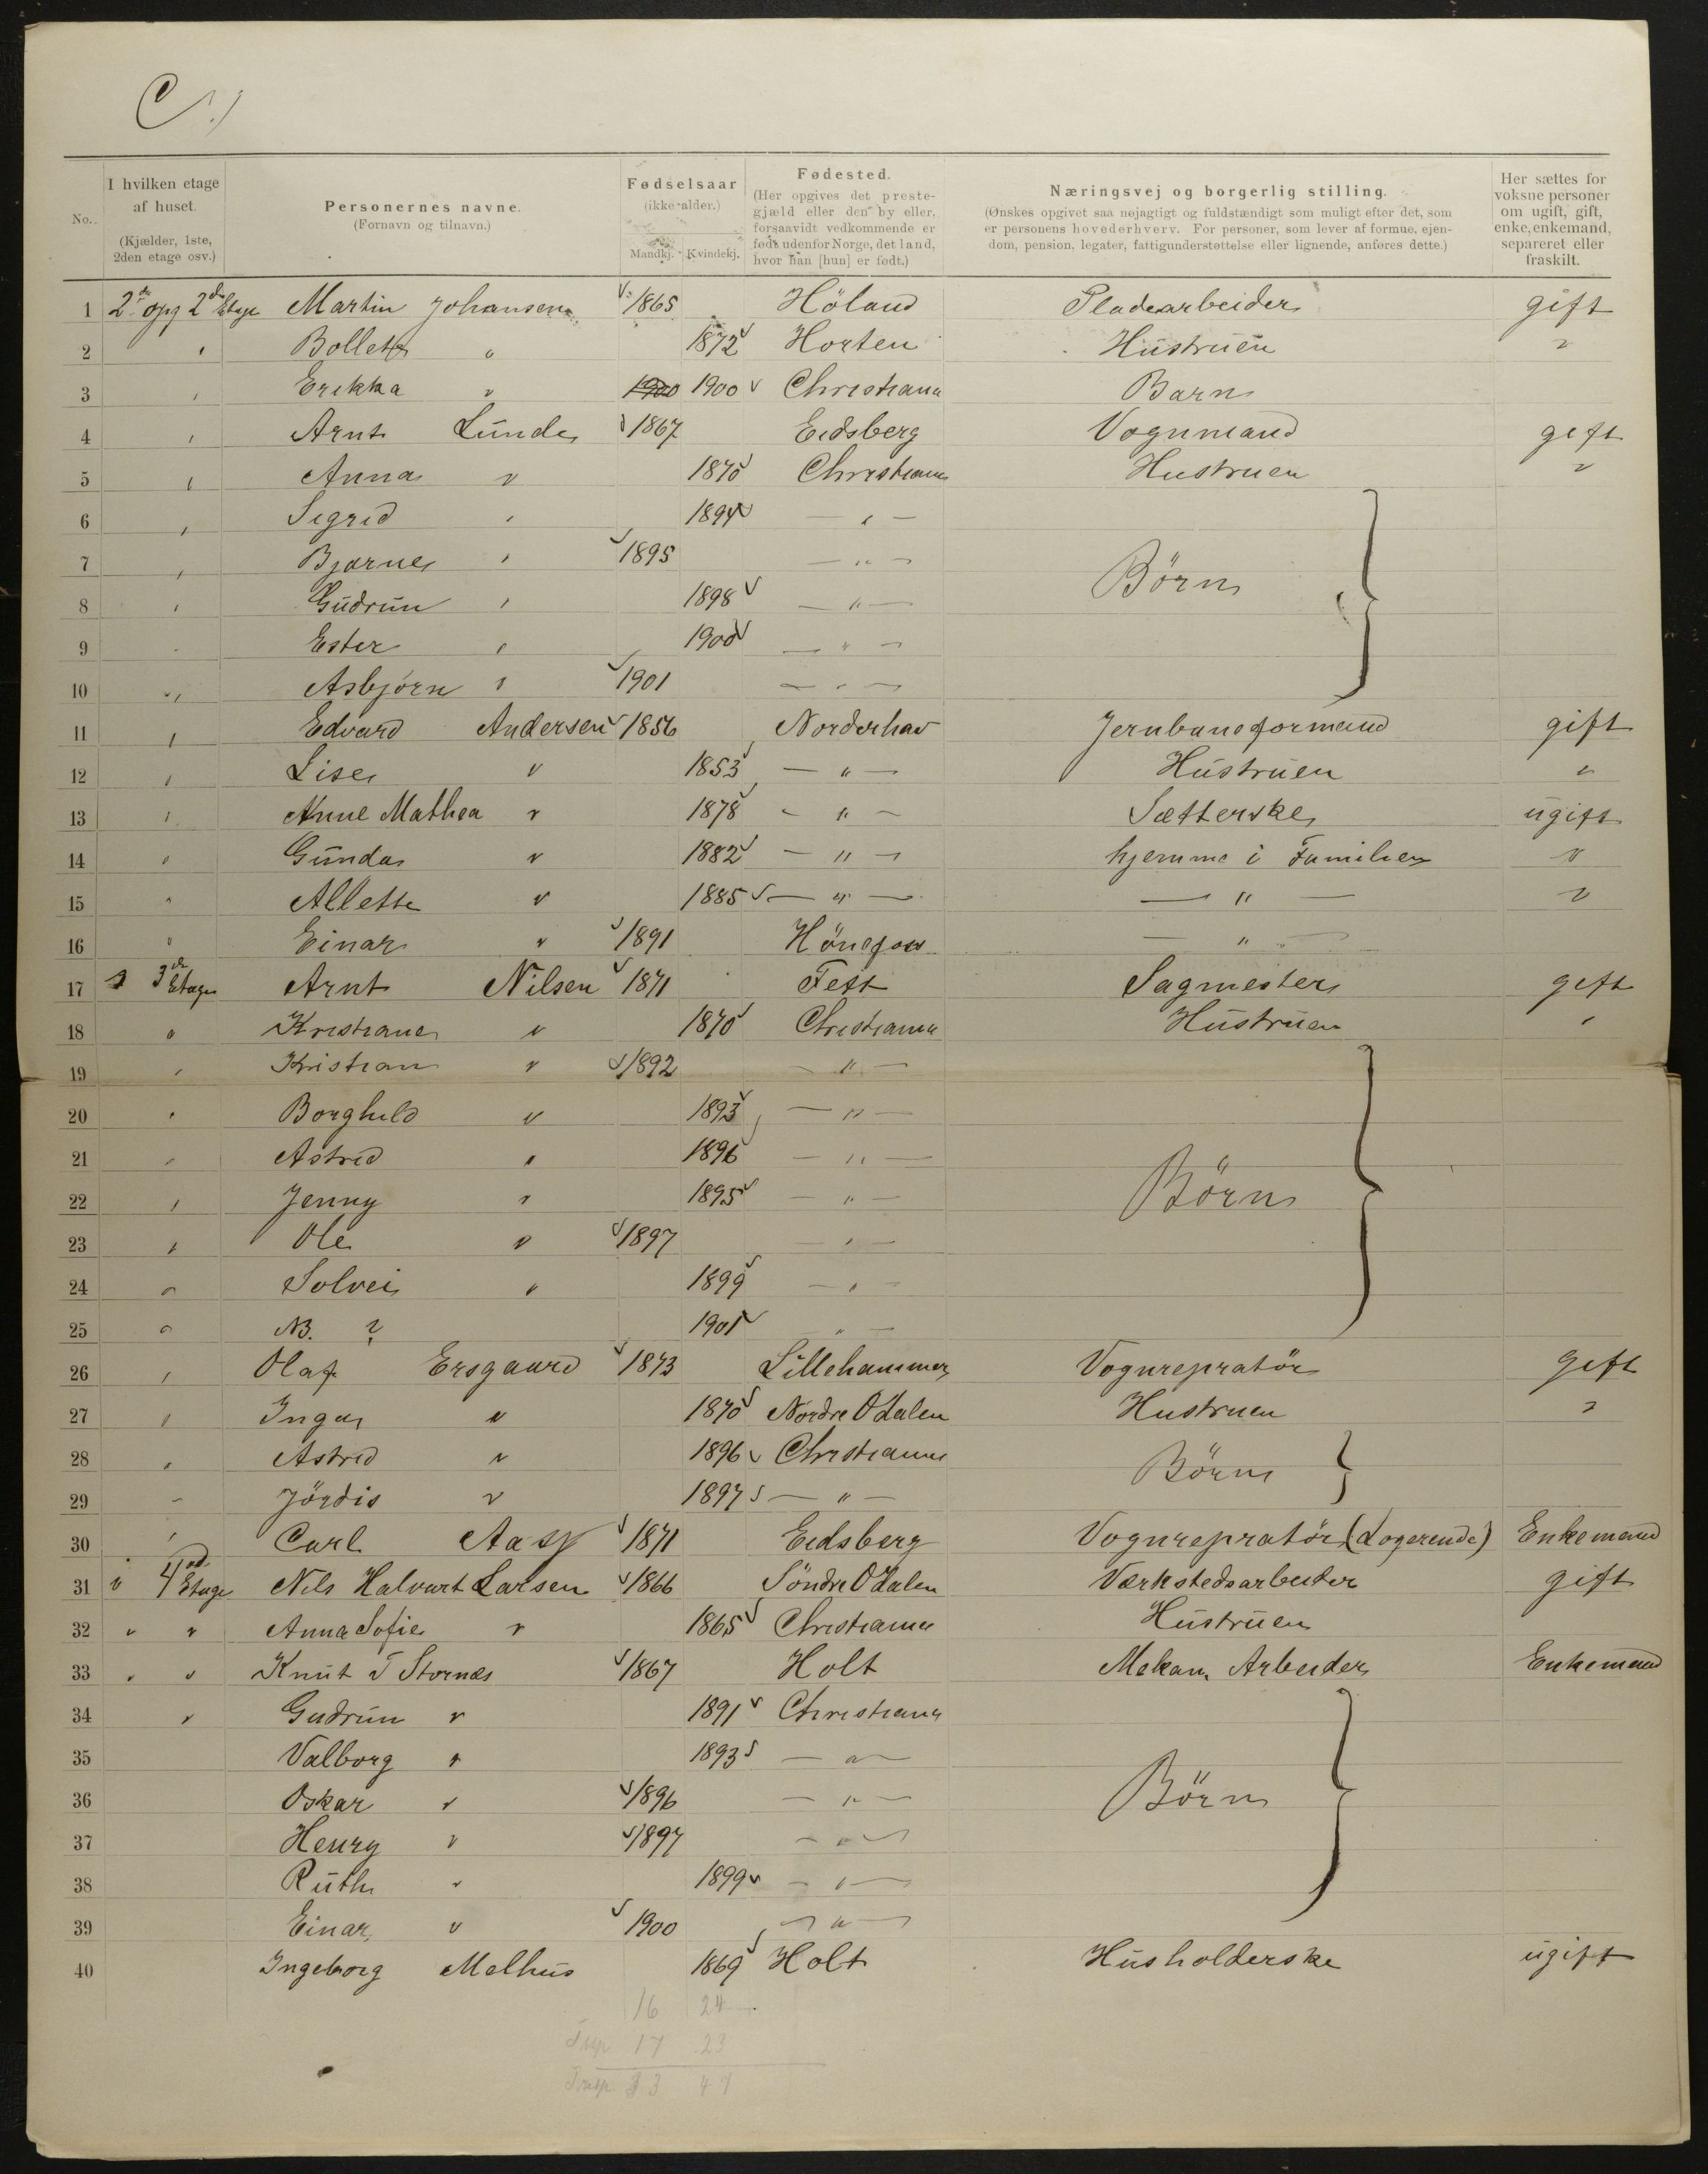 C.)
No. | I hvilken etage af huset. (Kjælder, 1ste, 2den etage osv.) | Personernes navne. (Fornavn og tilnavn.) | Fødselsaar (ikke alder.) Mandkj. | Kvindekj. | Fødested. (Her opgives det prestegjæld eller den by eller, forsaavidt vedkommende er født udenfor Norge, det land, hvor han [hun] er født.) | Næringsvej og borgerlig stilling. (Ønskes opgivet saa nøjagtigt og fuldstændigt som muligt efter det, som er personens hovederhverv. For personer, som lever af formue, ejendom, pension, legater, fattigunderstøttelse eller lignende, anføres dette.) | Her sættes for voksne personer om ugift, gift, enke, enkemand, separeret eller fraskilt.
1 2den opg 2den Etage Martin Johansen 1865 Höland Pladearbeider gift
2 " Bollette " 1872 Horten Hustruen "
3 " Erikka " 1900 1900 Christiania Barn
4 " Arnt Lunde 1867 Eidsberg Vognmand gift
5 " Anna " 1870 Christiania Hustruen "
6 " Sigrid " 1894 — " —
7 " Bjarne " 1895 — " —
8 " Gudrun " 1898 — " — Börn
9 " Ester " 1900 — " —
10 " Asbjörn " 1901 — " —
11 " Edvard Andersen 1856 Norderhov Jernbaneformand gift
12 " Lise " 1853 — " — Hustruen "
13 " Anne Mathea " 1878 — " — Sætterske ugift
14 " Gunda " 1882 — " — hjemme i Familien "
15 " Allette " 1885 — " — — " — "
16 " Einar " 1891 Hönefos — " —
17 " 3die Etage Arnt Nilsen 1871 Fett Sagmester gift
18 " Kristiane " 1870 Christiania Hustruen "
19 " Kristian " 1892 — " —
20 " Borghild " 1893 — " —
21 " Astrid " 1896 — " —
22 " Jenny " 1895 — " — Börn
23 " Ole " 1897 — " —
24 " Solvei " 1899 — " —
25 " NB. ? 1901 — " —
26 " Olaf Ersgaard 1873 Lillehammer Vognrepratör gift
27 " Inga " 1870 Nordre Odalen Hustruen "
28 " Astrid " 1896 Christiania Börn
29 " Jördis " 1897 — " —
30 " Carl Aas 1871 Eidsberg Vognrepratör (Logerende) Enkemand
31 " 4de Etage Nils Halvart Larsen 1866 Söndre Odalen Værkstedsarbeider gift
32 " " Anna Sofie " 1865 Christiania Hustruen
33 " " Knut T Stornæs 1867 Holt Mekan. Arbeider Enkemand
34 " Gudrun " 1891 Christiania
35 Valborg " 1893 — " —
36 Oskar " 1896 — " — Börn
37 Henry " 1897 — " —
38 Ruth " 1899 — " —
39 Einar " 1900 — " —
40 Ingeborg Melhus 1869 Holt Husholderske ugift
16 24
Trsp 17 23
Trsp. 33 47